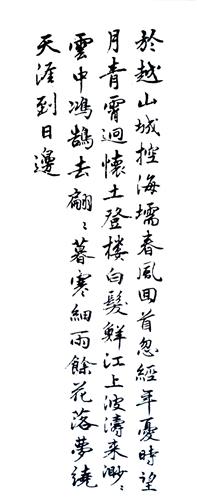 於越山城控海壖春風回首忽經年憂時望
月青霄迥懷土登楼白髮鮮江上波濤來渺〻
雲中鴻鵠去翩〻暮寒細雨餘花落夢繞
天涯到日邊